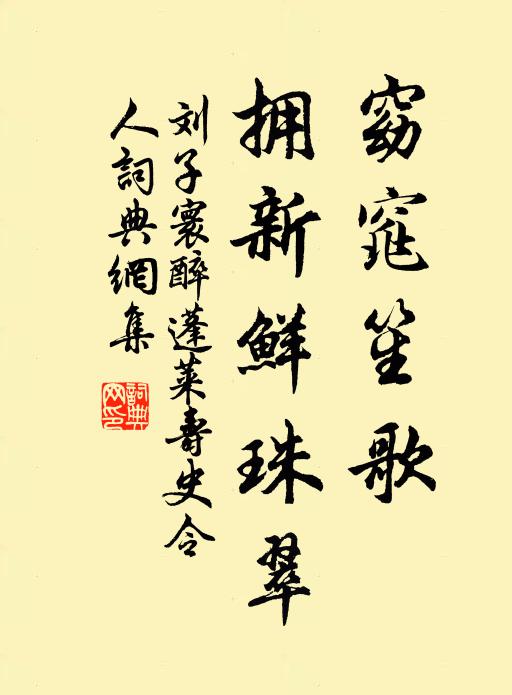 窈窕笙歌
拥新鲜珠翠
刘子寰醉蓬莱寿史令
人詞典網集
詞典
网印